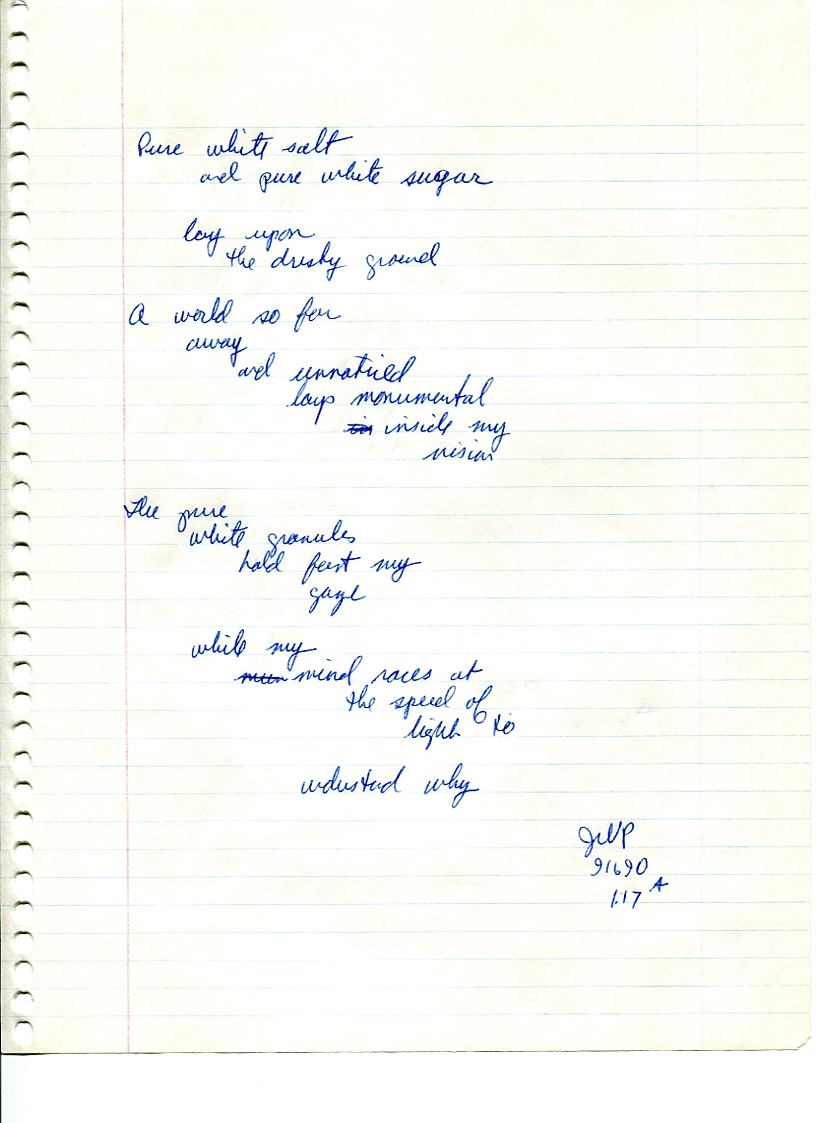 Pure white salt
and pure white sugar
lay upon
the dusky ground
A world so far
away
and unnoticed
lays monumental
inside my
vision
the pure
white granules
hold fast my
gaze
while my
mind races at
the speed of
light to
understand why
91690
1:17 A